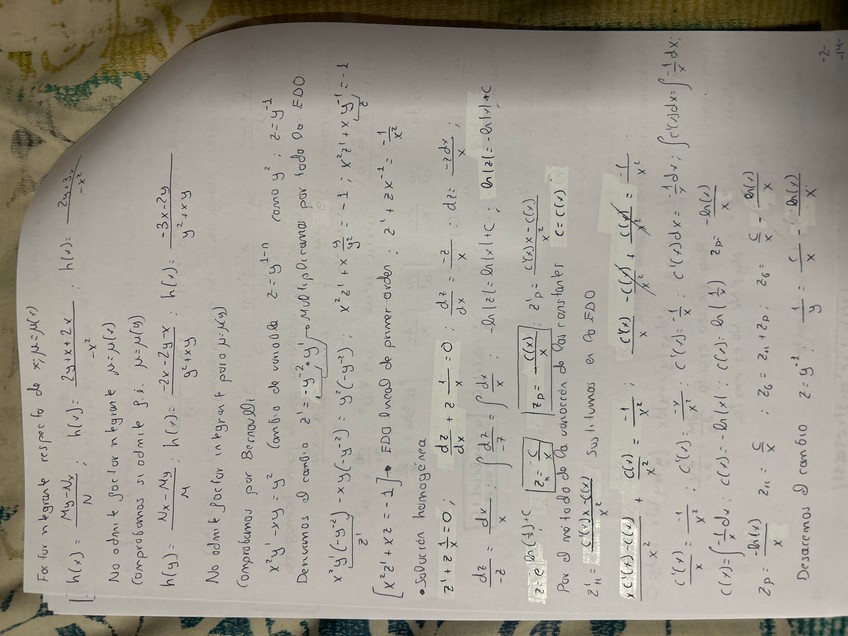 Factor integrante respecto de x; μ=μ(x)
h(x) = My-Nx / N ; h(x) = 2y+x+2x / -x² ; h(x) = 2y+3x / -x²
No admite factor integrante μ=μ(x)
Comprobamos si admite f.i. μ=μ(y)
h(y) = Nx-My / M ; h(x) = -2x-2y-x / y²+xy ; h(x) = -3x-2y / y²+xy
No admite factor integrante para μ=μ(y)
Comprobamos por Bernoulli
x²y'-xy=y² Cambio de variable z=y^1-n como y² ; z=y^-1
Derivamos el cambio z'=-y^-2·y' → Multiplicamos por todo la EDO
x²y'(-y^-2)-xy(-y^-2)=y²(-y^-2) ; x²z'+x y/y² = -1 ; x²z'+xy^-1=-1
z' z
[x²z'+xz=-1] → EDO lineal de primer orden ; z'+zx^-1 = -1/x²
• Solución homogénea
z'+z 1/x=0 ; dz/dx + z 1/x=0 ; dz/dx = -z/x ; dz= -zdx/x ;
dz/-z = dx/x ; ∫dz/-z = ∫dx/x ; -ln|z|=ln|x|+c ; ln|z|=-ln|x|+c
z=e^ln(1/x)+c z_h=c/x z_p= c(x)/x ; z'_p= c'(x)x-c(x)/x²
Por el método de la variación de las constantes c=c(x)
z'_h = c'(x)x-c(x)/x² sustituimos en la EDO
x c'(x)-c(x)/x² + c(x)/x² = -1/x² ; c'(x)/x - c(x)/x² + c(x)/x² = -1/x² .
c'(x)/x = -1/x² ; c'(x)= -x/x² ; c'(x)= -1/x ; c'(x)dx = -1/x dx ; ∫c'(x)dx=∫-1/x dx ;
c(x)=∫-1/x dx . c(x)=-ln|x| ; c(x)=ln(1/x) z_p= -ln(x)/x
z_p= -ln(x)/x z_H= c/x ; z_G=z_H+z_p ; z_G= c/x - ln(x)/x
Desacemos el cambio z=y^-1 ; 1/y = c/x - ln(x)/x
-2-
-14-